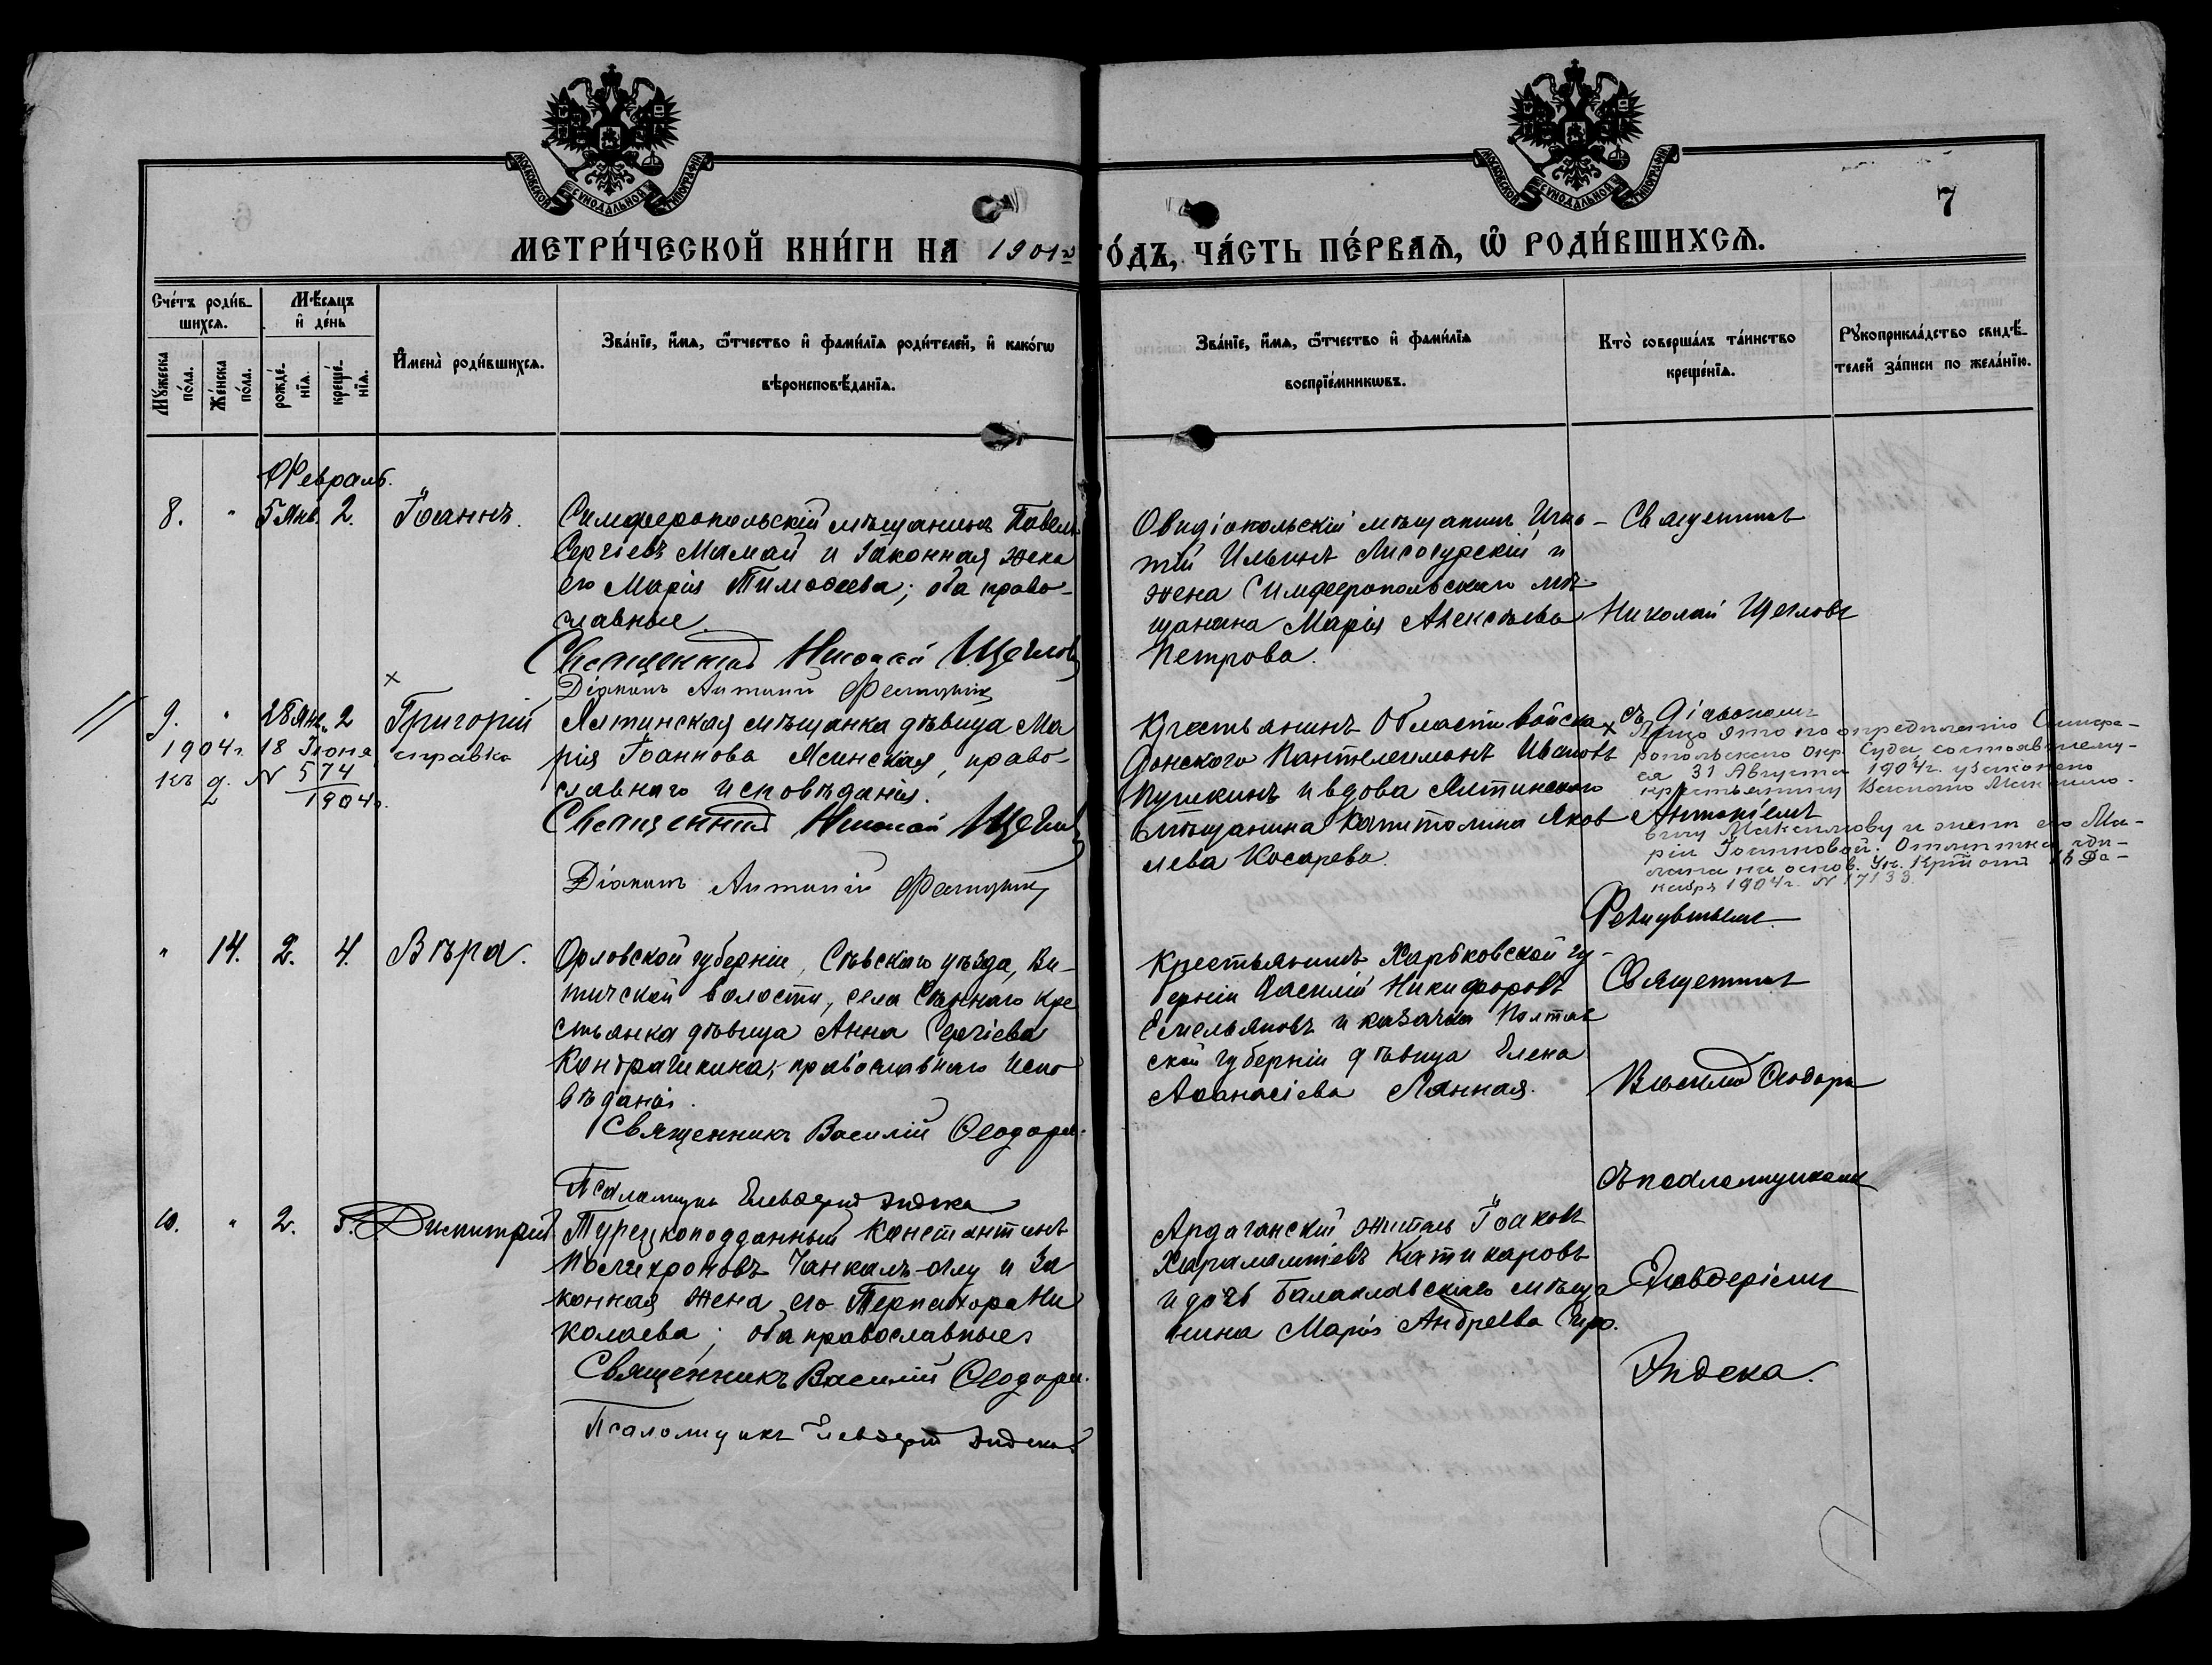 МОСКОВСКОЙ СѴНОДАЛЬНОЙ ТИПОГРАФІИ
МОСКОВСКОЙ СѴНОДАЛЬНОЙ ТИПОГРАФІИ
7
МЕТРИ́ЧЕСКОЙ КНИ́ГИ НА 1901й
ГО́ДЪ, ЧА́СТЬ ПЕ́РВАѦ, Ѡ РОДИ́ВШИХСѦ.
Сче́тъ роди́в-
шихсѧ.
Мꙋ́жеска по́ла.
Же́нска по́ла.
Мѣ́сяцъ
и҆ де́нь
рожде́-нїѧ.
креще́-нїѧ.
И҆мена̀ роди́вшихсѧ.
Зва́нїе, и҆́мѧ, ѻ҆́тчество и҆ фами́лїѧ роди́телей, и҆ како́гѡ
вѣроисповѣ́данїѧ.
Зва́нїе, и҆́мѧ, ѻ҆́тчество и҆ фами́лїѧ
воспрїе́мникѡвъ.
Кто̀ соверша́лъ та́инство
креще́нїѧ.
Рꙋкоприкла́дство свидѣ́-
телей за́писи по жела́нїю.
Февраль.
8. " 5 Янв. 2. Іоаннъ.
Симферопольскій мѣщанинъ Павелъ
Сергіевъ Мамай и законная жена
его Марія Тимоѳеева; оба право-
славные.
Священникъ Николай Щегловъ
Діаконъ Антоній
Овидіопольскій мѣщанинъ Игна-
тій Ильинъ Лисогурскій и
жена Симферопольскаго мѣ-
щанина Марія Алексѣева
Петрова.
Священникъ
Николай Щегловъ
9. " 28 Янв. 2 Григорій
1904г. 18 Іюня справка
къ д. N 574
1904г.
Ялтинская мѣщанка дѣвица Ма
рія Іоаннова Ясинская, право-
славнаго исповѣданія.
Священникъ Николай Щегловъ
Діаконъ Антоній
Крестьянинъ Области войска
Донского Пантелеимонъ Ивановъ
Пушкинъ и вдова Ялтинскаго
мѣщанина Капитолина Яков
лева Косарева.
съ Діакономъ
Антоніемъ
× Лицо это по опредѣленію Симфе-
ропольскаго Окр. Суда, состоявшему-
ся 31 Августа 1904г. узаконено
крестьянину Максимо-
вичу Максимову и женѣ его Ма-
ріи Іоанновой. Отмѣтка сдѣ-
лана на основ. Ук. отъ 18 Де-
кабря 1904г. N 17133.
" 14. 2. 4. Вѣра.
Орловской губерніи, Сѣвскаго уѣзда, Ви-
тичской волости, села Сѣннаго кре
стьянка дѣвица Анна Сергіева
Кондрашкина, православнаго испо
вѣданія.
Священникъ Василій Ѳеодори.
Псаломщикъ Елевѳерій Эндека
Крестьянинъ Харьковской гу-
берніи Василій Никифоровъ
Емельяновъ и казачка Полтав
ской губерніи дѣвица Елена
Аѳанасіева Лянная.
Священникъ
Василій Ѳеодори
съ псаломщикомъ
Елевѳеріемъ
Эндека.
10. " 2. 5. Димитрій
Турецкоподданный Константинъ
Полихроновъ Чанкалъ-оглу и за
конная жена его Терпсихора Ни
колаева; оба православные.
Священникъ Василій Ѳеодори.
Псаломщикъ Елевѳерій Эндека
Ардаганскій житель Іоаковъ
Харалампіевъ Катикаровъ
и дочь Балаклавскаго мѣща
нина Марія Андреева